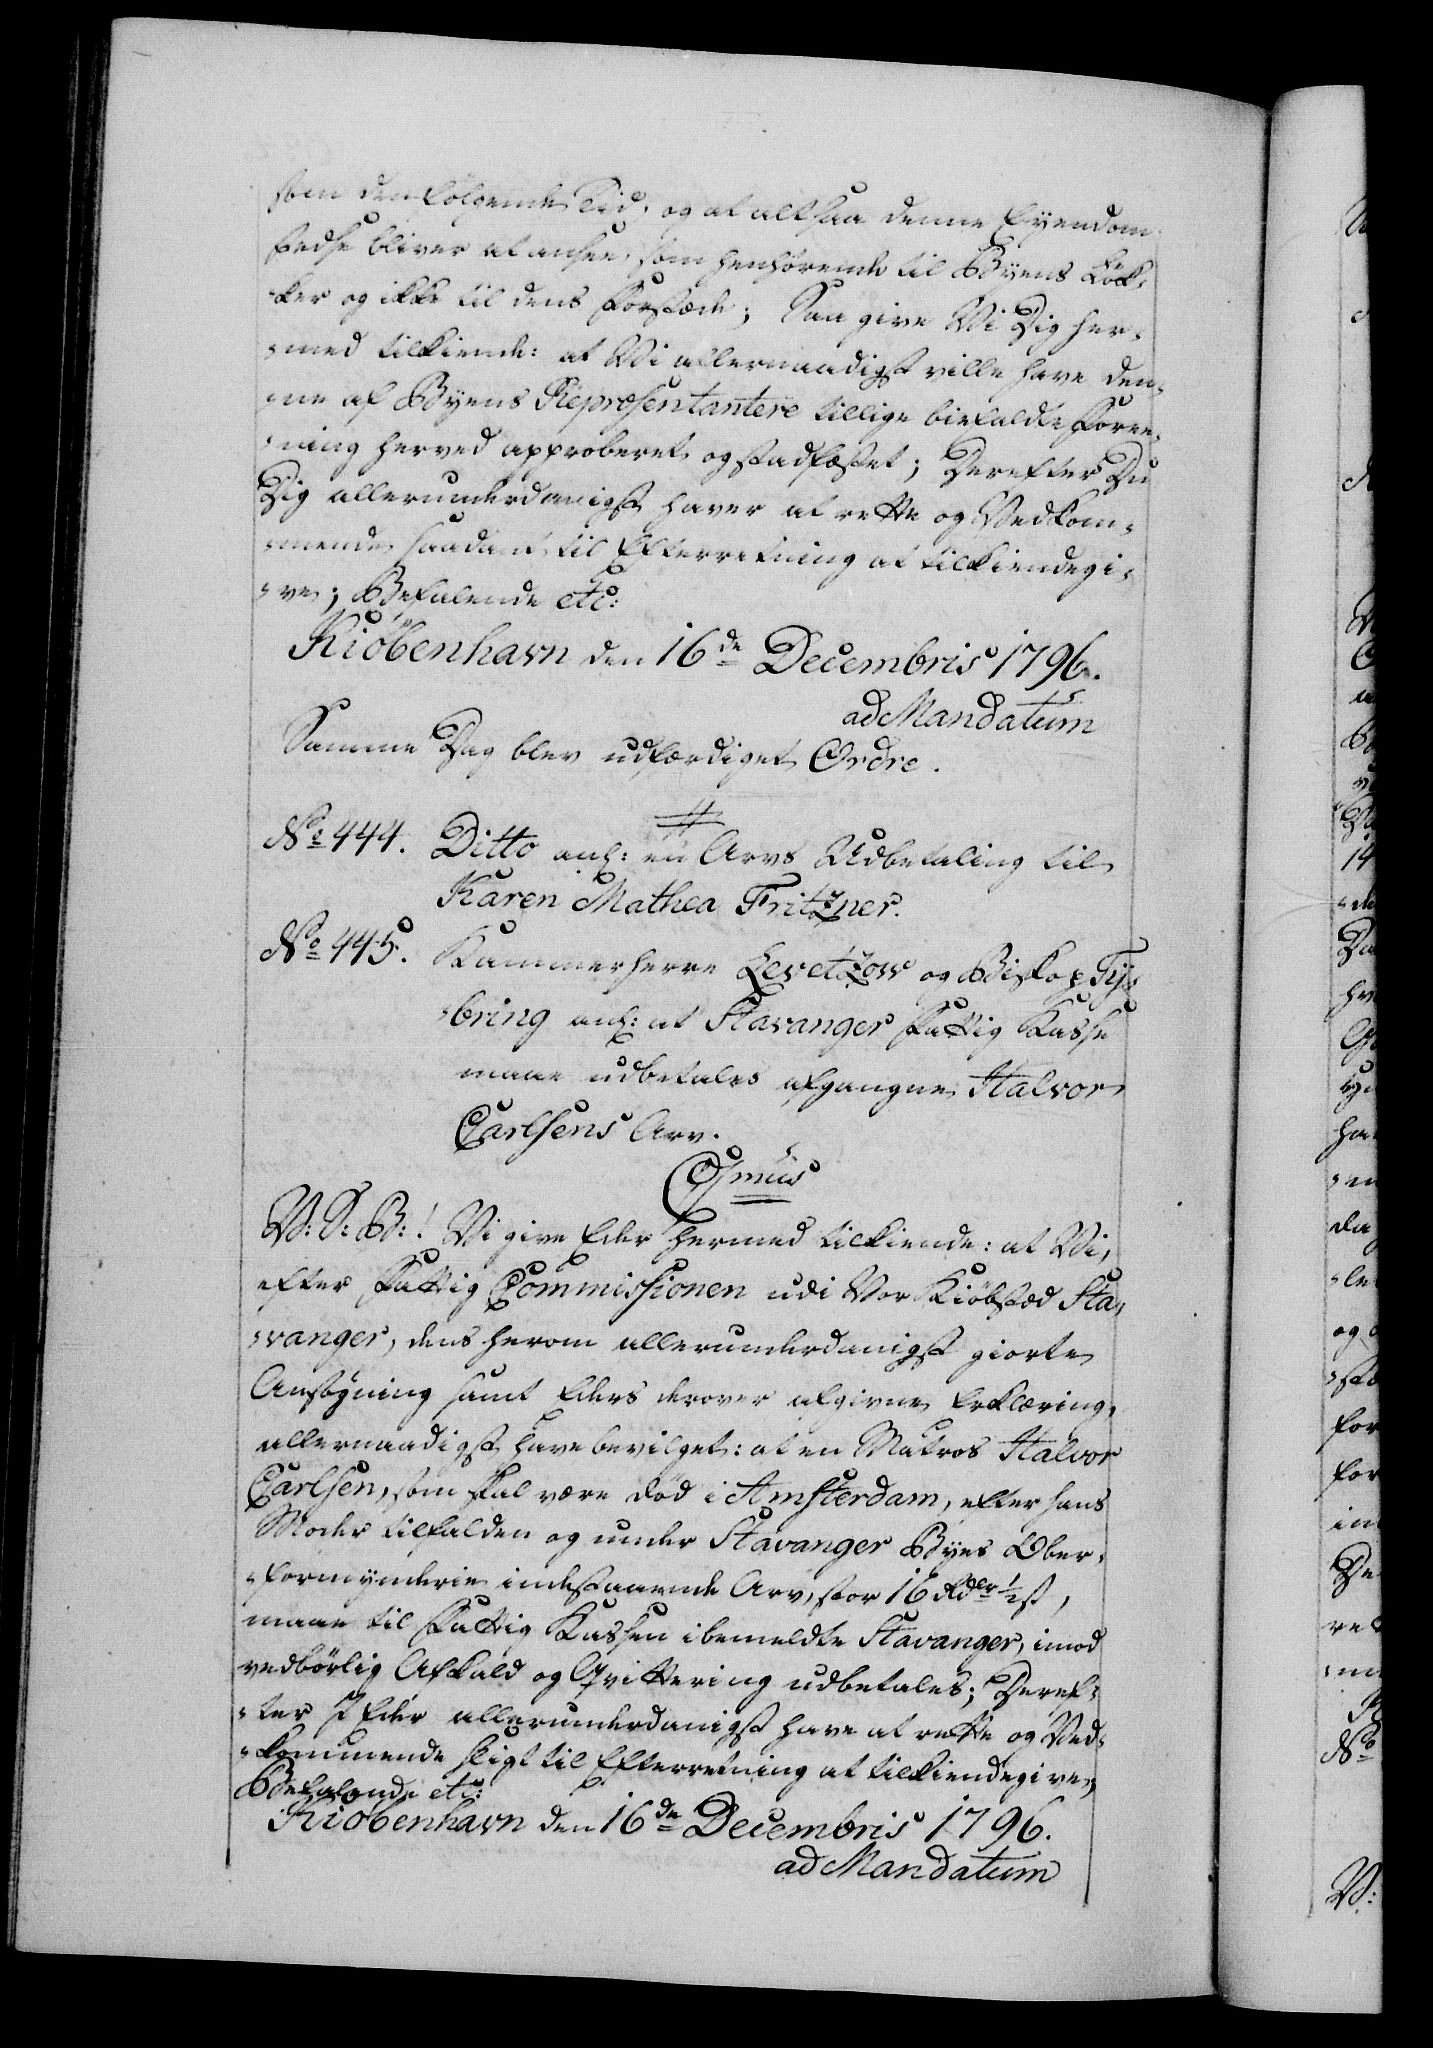 som den følgende Tid, og at altsaa denne Eyendom
bedst bliver at ansee, som henhørende til Byens Løk-
-ker og ikke til dens Forstæder; Saa give Vi Dig her-
-med tilkiende: at Vi allernaadigst ville have den-
-ne af Byens Repræsentantere tillige bifaldte Foree-
-ning herved approberet og stadfæstet; Derefter Du
Dig allerunderdanigst haver at rette og Vedkom-
-mende saadant til Efterretning at tilkiendegi-
-ve; Befalende etc:
Kiøbenhavn den 16de Decembris 1796.
ad Mandatum
Samme Dag blev udfærdiget Ordre.
No 444. Ditto anl: en Arvs Udbetaling til
Karen Mathea Fritzner.
No 445. Kammerherre Levetzow og Biskop Tys-
-bring anl: at Stavanger Fattig Kasse
maae udbetales afgangne Halvor
Carlsens Arv.
V: S: B:! Vi give Eder hermed tilkiende: at Vi,
efter Fattig Commissionen udi Vor Kiøbstæd Sta-
-vanger, dens herom allerunderdanigst giorte
Ansøgning samt Eders derover afgivne Erklæring,
allernaadigst have bevilget: at en Matros Halvor
Carlsen, som skal være død i Amsterdam, efter hans
Moder tilfalden og under Stavanger Byes Ober-
-formynderie indestaaende Arv, stor 16 Rdlr 1/2 ß,
maae til Fattig Kassen ibemeldte Stavanger, imod
vedbørlig Afkald og Qvittering udbetales; Deref-
-ter I Eder allerunderdanigst have at rette og Ved-
-kommende sligt til Efterretning at tilkiendegive;
Befalende etc:
Kiøbenhavn den 16de Decembris 1796.
ad Mandatum